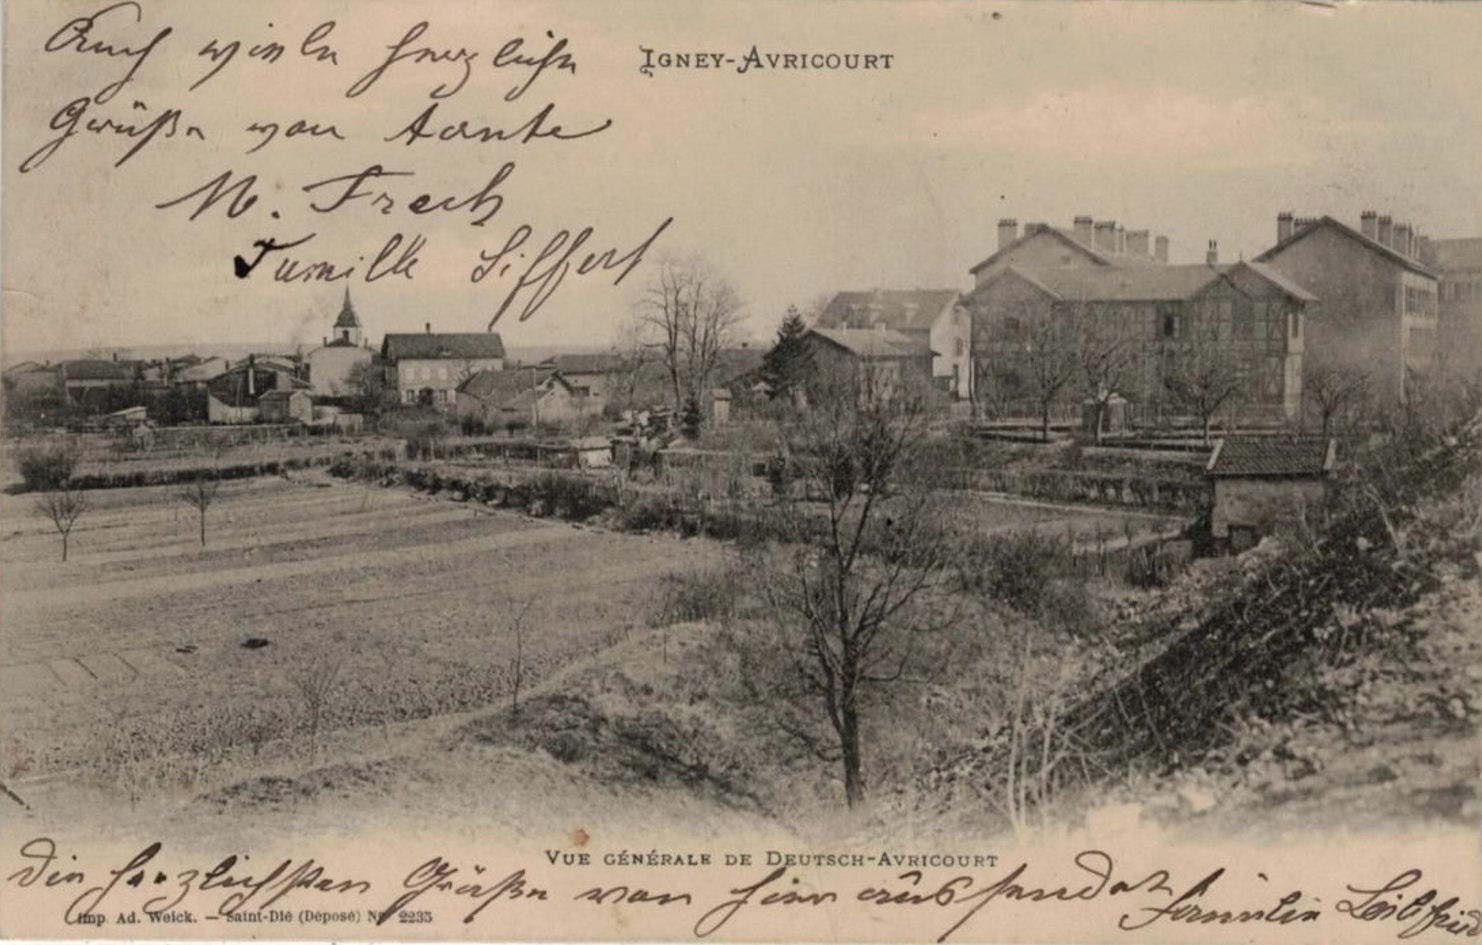 Auch viele herzliche
Grüße von Tante
M. Frech
Familie Siffert
IGNEY-AVRICOURT
VUE GÉNÉRALE DE DEUTSCH-AVRICOURT
Die herzlichsten Grüße von hier aus sendet Familie
Imp. Ad. Weick. — Saint-Dié (Déposé) No 2235